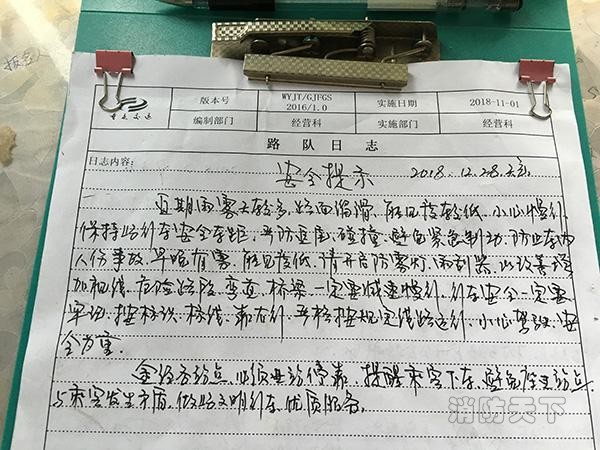 重庆交运
版本号 WYJT/GJFGS 2016/1.0 实施日期 2018-11-01
编制部门 经营科 实施部门 经营科
路队日志
日志内容:
安全提示 2018.12.28
近期雨雾天较多,路面湿滑,能见度较低,小心慢行,
保持好行车安全车距,严防追尾,碰撞,避免紧急制动,防止车内
人伤事故,早晚有雾,能见度低,请开启防雾灯,雨刮器,以改善
加视线,危险路段,弯道,桥梁一定要减速慢行,行车安全一定要
牢记,按标识,标线,靠右行,严格按规定线路运行,小心驾驶,安
全万重.
途经各站点,必须进站停靠,提醒乘客下车,避免站点
与乘客发生矛盾,做好文明行车,优质服务.
消防天下